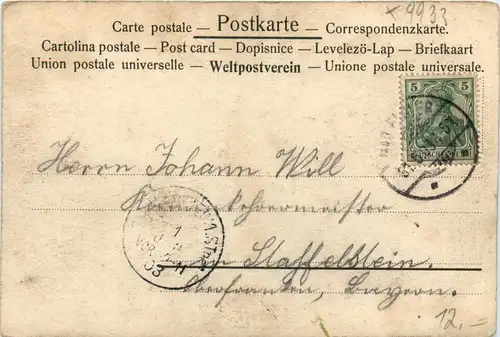 × 9933
Carte postale — Postkarte — Correspondenzkarte.
Cartolina postale — Post card — Dopisnice — Levelező-Lap — Briefkaart
Union postale universelle — Weltpostverein — Unione postale universale.
5 5
Herrn Johann Will
in Staffelstein.
Oberfranken, Bayern.
12,=